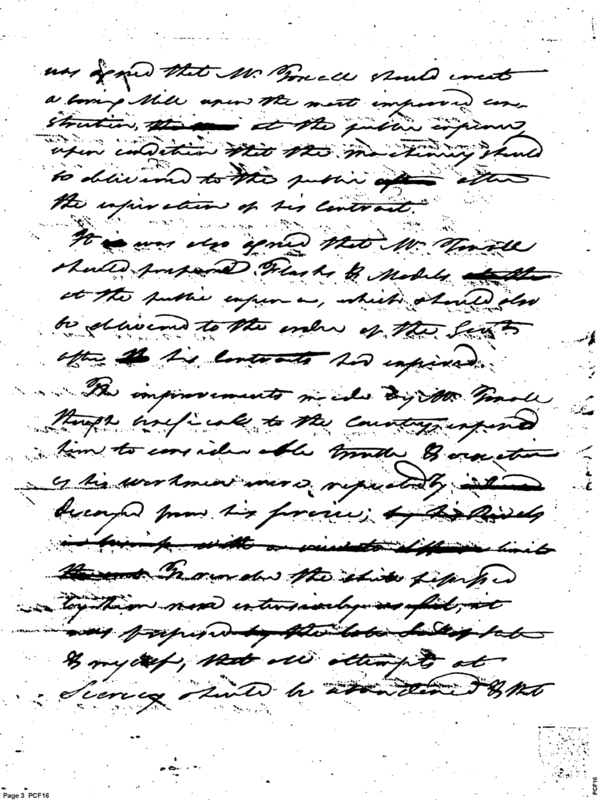 was agreed that Mr. Foxall should erect
a boring Mill upon the most improved con-
struction, at the public expence,
upon condition that the machinery should
be delivered to the public after
the expiration of his Contract.
It was also agreed that Mr. Foxall
should prepare Flasks & Models
at the public expence, which should also
be delivered to the order of the Govt.
after his Contracts had expired.
The improvements made by Mr. Foxall
though beneficial to the Country exposed
him to considerable trouble & vexation
as his workmen were repeatedly
decoyed from his service; by his Rivals
with a limits
To render the skill possessed
by them more extensively useful, it
was proposed by the late
& myself, that all attempts at
Secrecy should be abandoned & that
Page 3 PCF16
PCF16